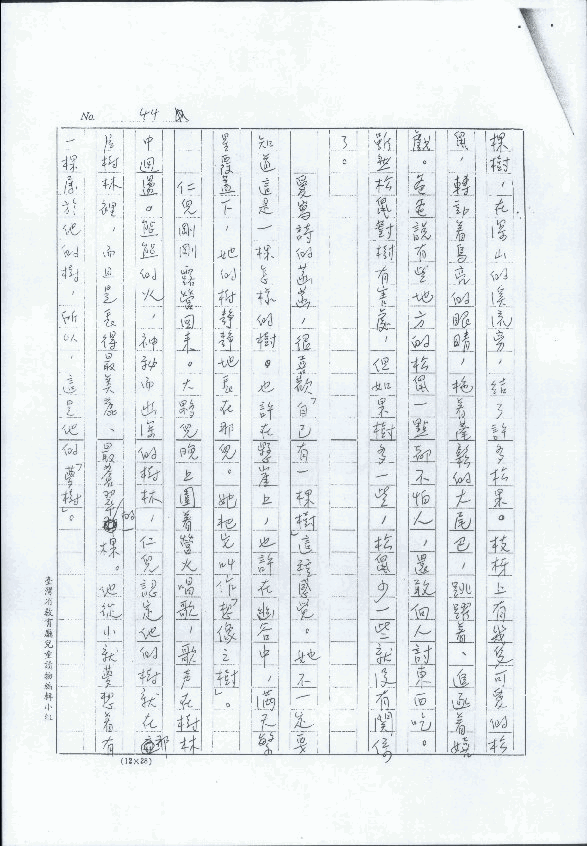 No. 44
棵樹，在深山的溪流旁，結了許多松果。枝枒上有幾隻可愛的松
鼠，轉動着烏亮的眼睛，拖着蓬鬆的大尾巴，跳躍着、追逐着嬉
戲。爸爸說有些地方的松鼠一點都不怕人，還敢向人討東西吃。
雖然松鼠對樹有害處，但如果樹多一些，松鼠少一些就沒有關係
了。
愛寫詩的，很喜歡「自己有一棵樹」這種感覺。她不一定要
知道這是一棵怎樣的樹。也許在懸崖上，也許在幽谷中，滿天繁
星覆蓋下，她的樹靜靜地長在那兒。她把它叫作「想像之樹」。
仁兒剛剛露營回來。大夥兒晚上圍着營火唱歌，歌声在樹林
中迴盪。熊熊的火，神祕而幽深的樹林，仁兒認定他的樹就在那
片樹林裡，而且是長得最美麗、最蒼翠的一棵。他從小就夢想着有
一棵屬於他的樹，所以，這是他的「夢樹」。
(12×28)
臺灣省教育廳兒童讀物編輯小組